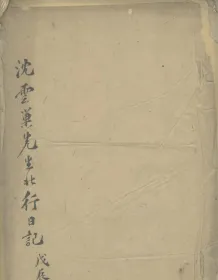 沈雲巢先生北行日記
戊辰